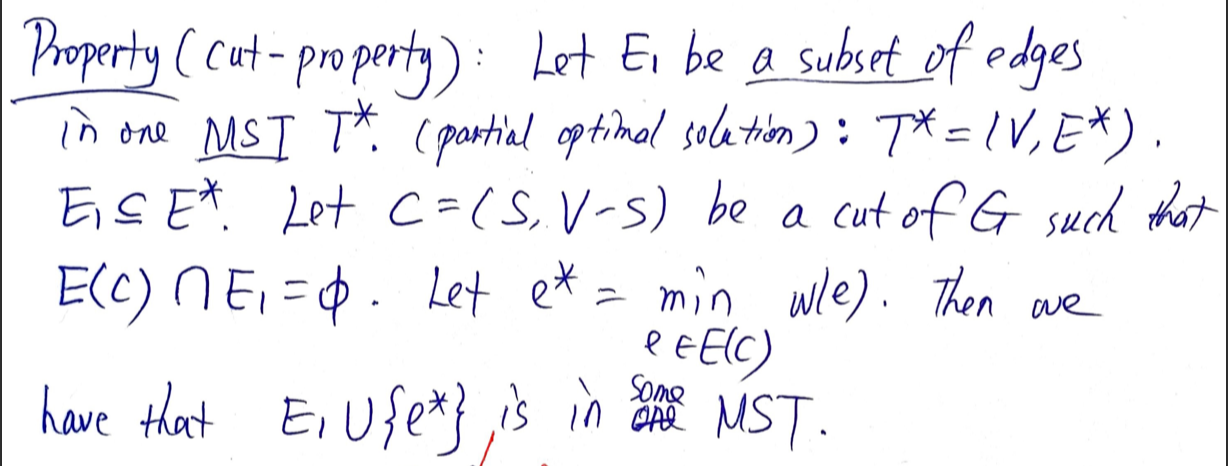 Property (cut-property): Let E₁ be a subset of edges
in one MST T*. (partial optimal solution): T* = (V, E*).
E₁ ⊆ E*. Let C = (S, V-S) be a cut of G such that
E(C) ∩ E₁ = ϕ. Let e* = min w(e). Then we
e ∈ E(C)
have that E₁ ∪ {e*} is in some MST.